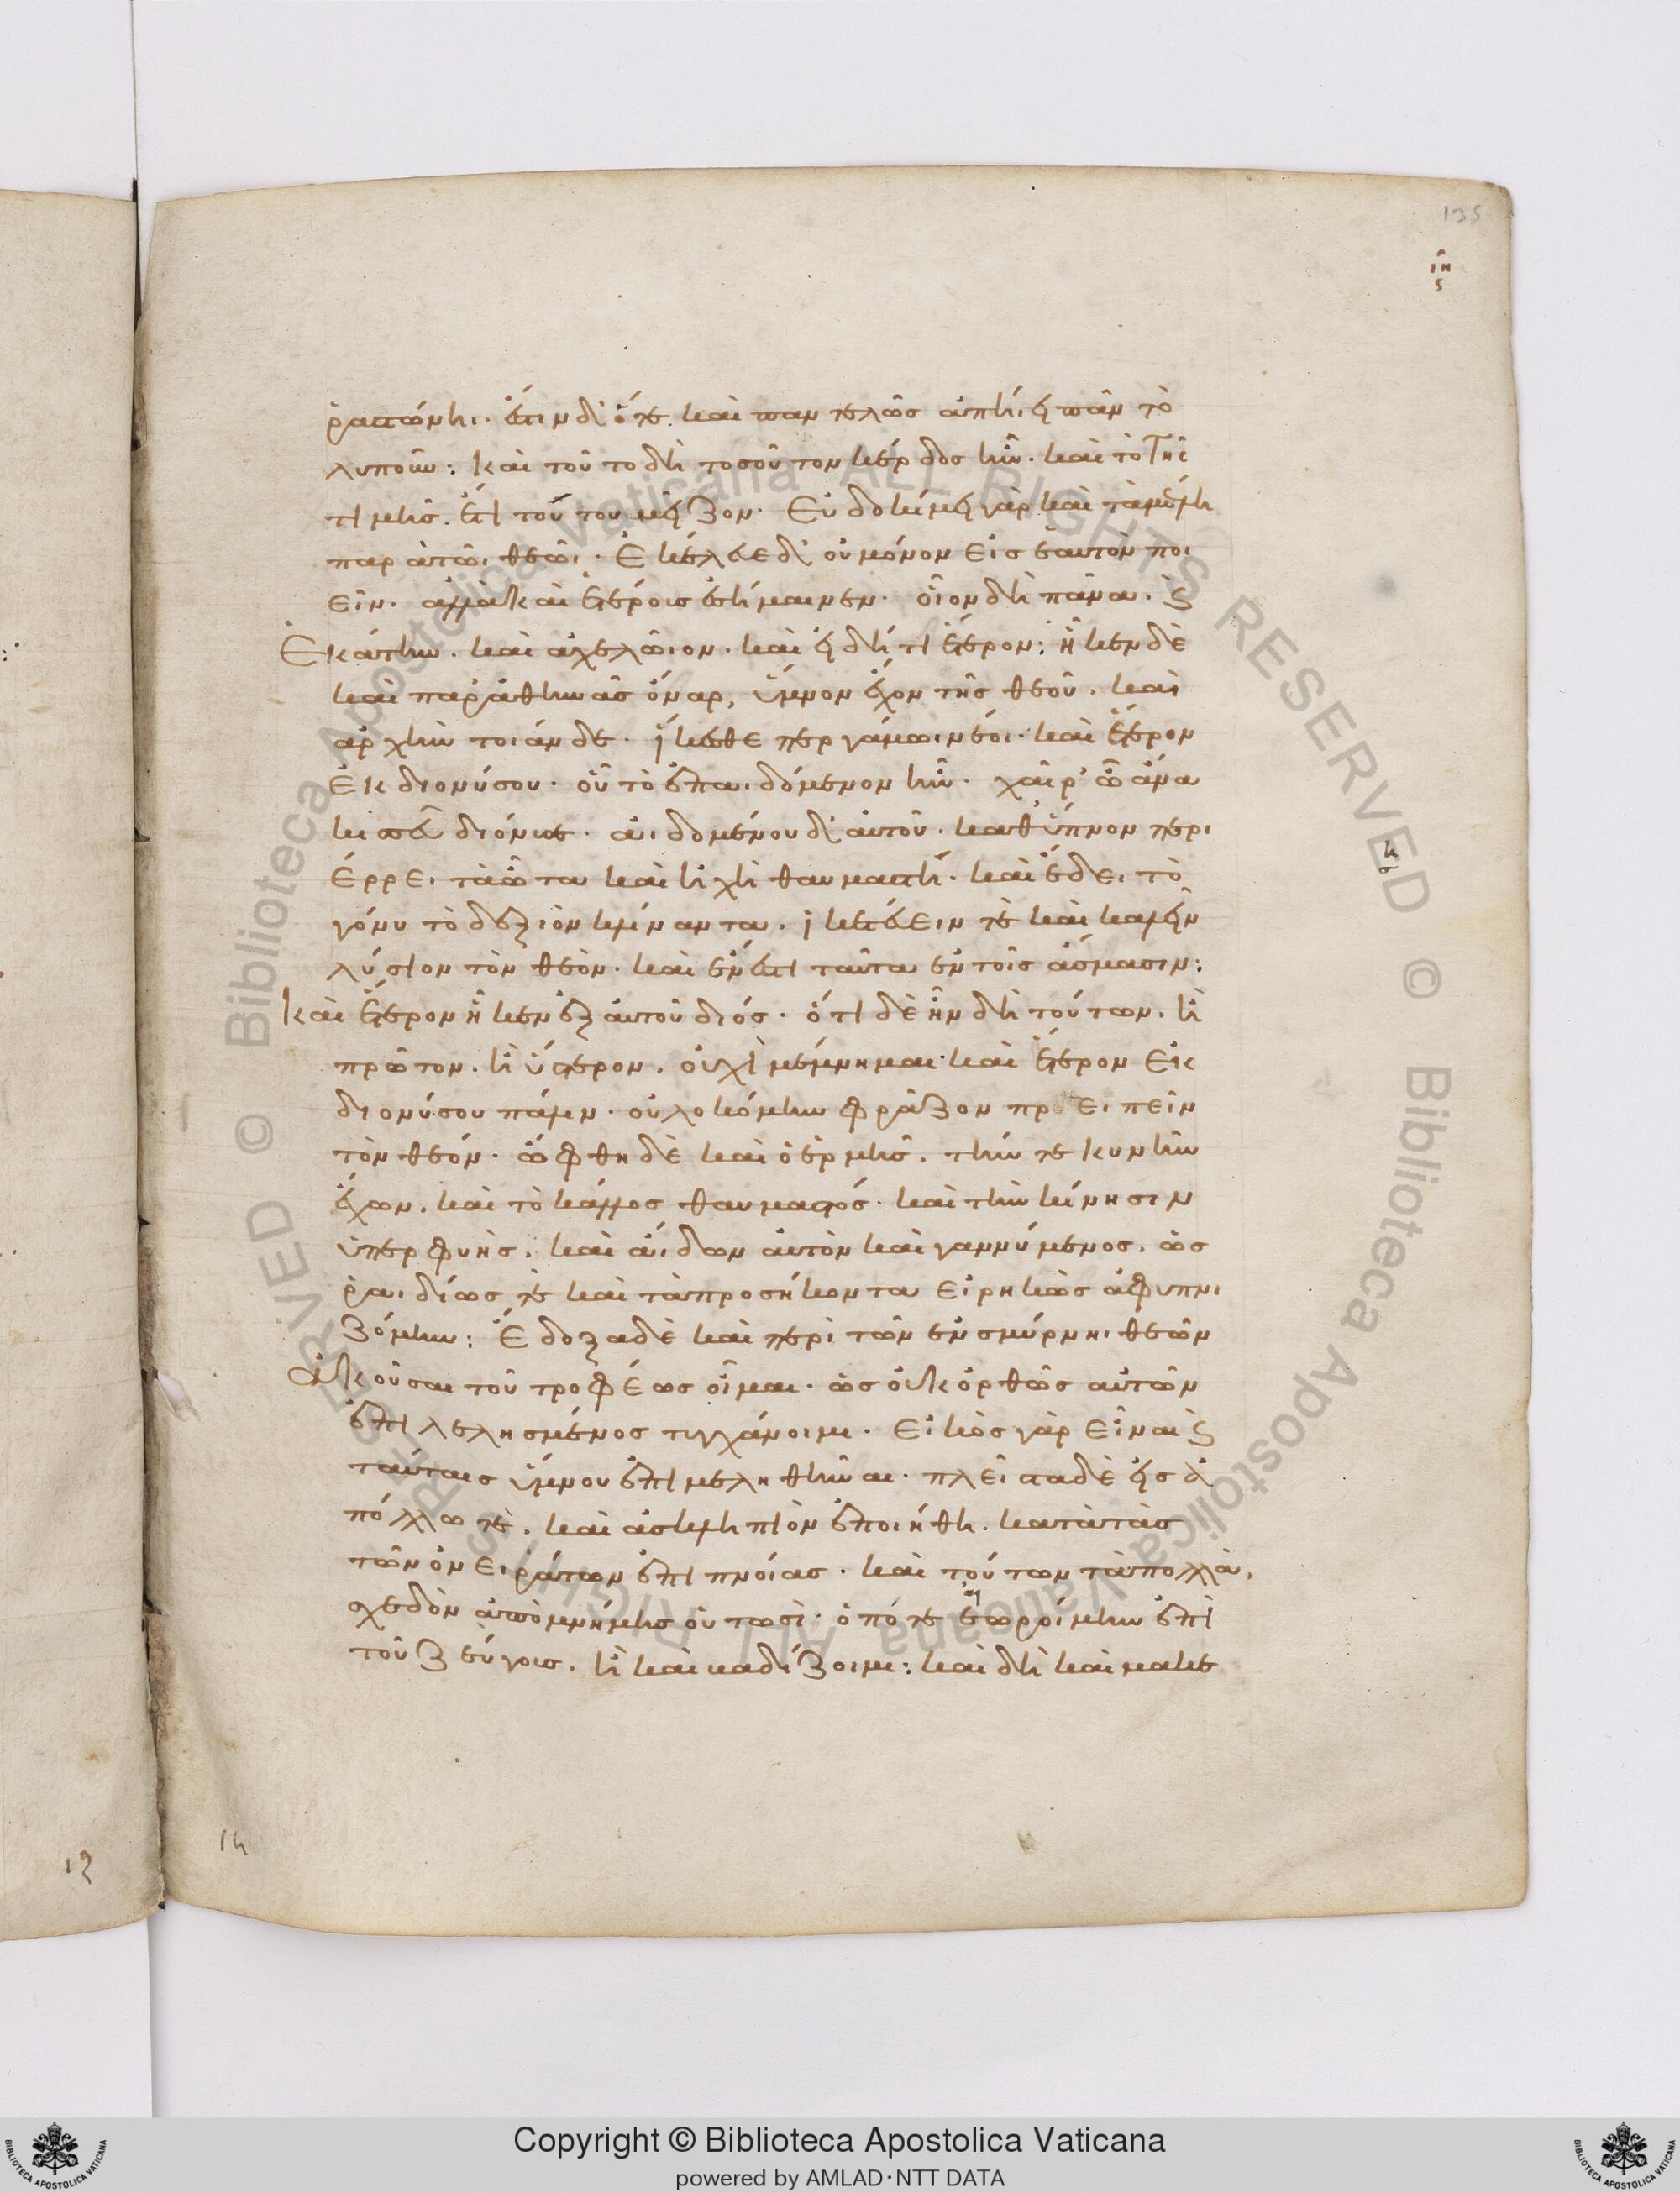 135
ιη
ς
ῥαστώνη. ἔστιν δ' ὅτε καὶ παντελῶς ἀπήει πᾶν τὸ
λυποῦν: καὶ τοῦτο δὴ τοσοῦτον κέρδος ἦν. καὶ τὸ τῆς
τιμῆς ἔτι τούτου μεῖζον. Εὐδοκίμει γὰρ καὶ τἀμὰ μέλη
παρὰ τῶι θεῶι. Ἐκέλευσε δ' οὐ μόνον εἰς ἑαυτὸν ποι
εῖν. ἀλλὰ καὶ ἑτέροις ἐσήμαινεν. οἷον δὴ πᾶνα. καὶ
Ἑκάτην. καὶ ἀχελῶιον. καὶ εἰ δή τι ἕτερον: ἧκεν δὲ
καὶ παρ' ἀθηνᾶς ὄναρ, ὕμνον ἔχον τῆς θεοῦ. καὶ
ἀρχὴν τοιάνδε. ἵκεσθε περγάμωι νέοι. καὶ ἕτερον
ἐκ διονύσου. οὗ τὸ ἐπαιδόμενον ἦν. χαῖρ' ὦ ἄνα
κισσεῦ διόνυσε. ἀιδομένου δ' αὐτοῦ. καθ' ὕπνον περι
έρρει τὰ ὦτα καὶ ἠχὴ θαυμαστή. καὶ ἔδει τὸ
γόνυ τὸ δεξιὸν κλίναντα. ἱκετεύειν τε καὶ καλεῖν
λύσιον τὸν θεόν. καὶ ἔνεστι ταῦτα ἐν τοῖς ἄσμασιν:
Καὶ ἕτερον ἧκεν ἐξ αὐτοῦ διός. ὅτι δὲ ἦν δὴ τούτων. ἢ
πρῶτον. ἢ ὕστερον. οὐχὶ μέμνημαι καὶ ἕτερον ἐκ
διονύσου πάλιν. οὐλοκόμην φράζον προσειπεῖν
τὸν θεόν. ὤφθη δὲ καὶ ὁ ἑρμῆς. τήν τε κυνῆν
ἔχων. καὶ τὸ κάλλος θαυμαστός. καὶ τὴν κίνησιν
ὑπερφυής. καὶ ἀίδων αὐτὸν καὶ γαννύμενος. ὡς
ῥαιδίως τε καὶ τὰ προσήκοντα εἰρηκὼς ἀφυπνι
ζόμην: Ἔδοξα δὲ καὶ περὶ τῶν ἐν σμύρνηι θεῶν
ἀκοῦσαι τοῦ τροφέως οἶμαι. ὡς οὐκ ὀρθῶς αὐτῶν
ἐπιλελησμένος τυγχάνοιμι. Εἰκὸς γὰρ εἶναι καὶ
ταύταις ὕμνου ἐπιμεληθῆναι. πλεῖστα δὲ εἰς ἀ
πόλλω τε. καὶ ἀσκληπιὸν ἐποιήθη. κατὰ τὰς
τῶν ὀνειράτων ἐπιπνοίας. καὶ τούτων τὰ πολλὰ,
σχεδὸν ἀπὸ μνήμης οὑτωσί. ὁπότε ἐωροίμην ἐπὶ
τοῦ ζεύγους. ἢ καὶ βαδίζοιμι: καὶ δὴ καὶ μακε
ιζ
ιη
Copyright © Biblioteca Apostolica Vaticana
powered by AMLAD·NTT DATA